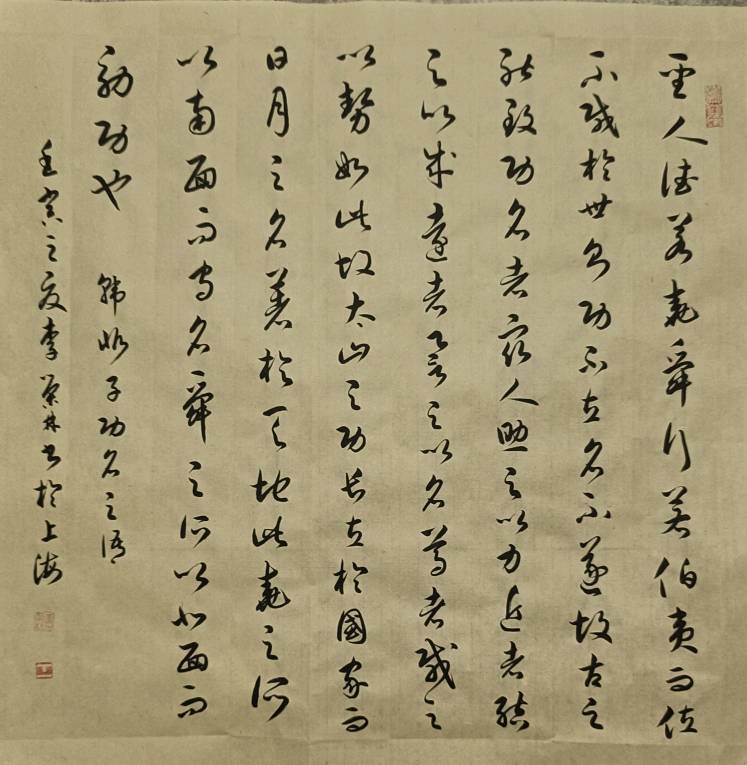 聖人德若堯舜行若伯夷而位
不載於世則功不立名不遂故古之
能致功名者衆人助之以力近者結
之以成遠者譽之以名尊者載之
以勢如此故太山之功長立於國家而
日月之名著於天地此堯之所
以南面而守名舜之所以北面而
効功也 韓非子功名之語
壬寅之夏李林書於上海